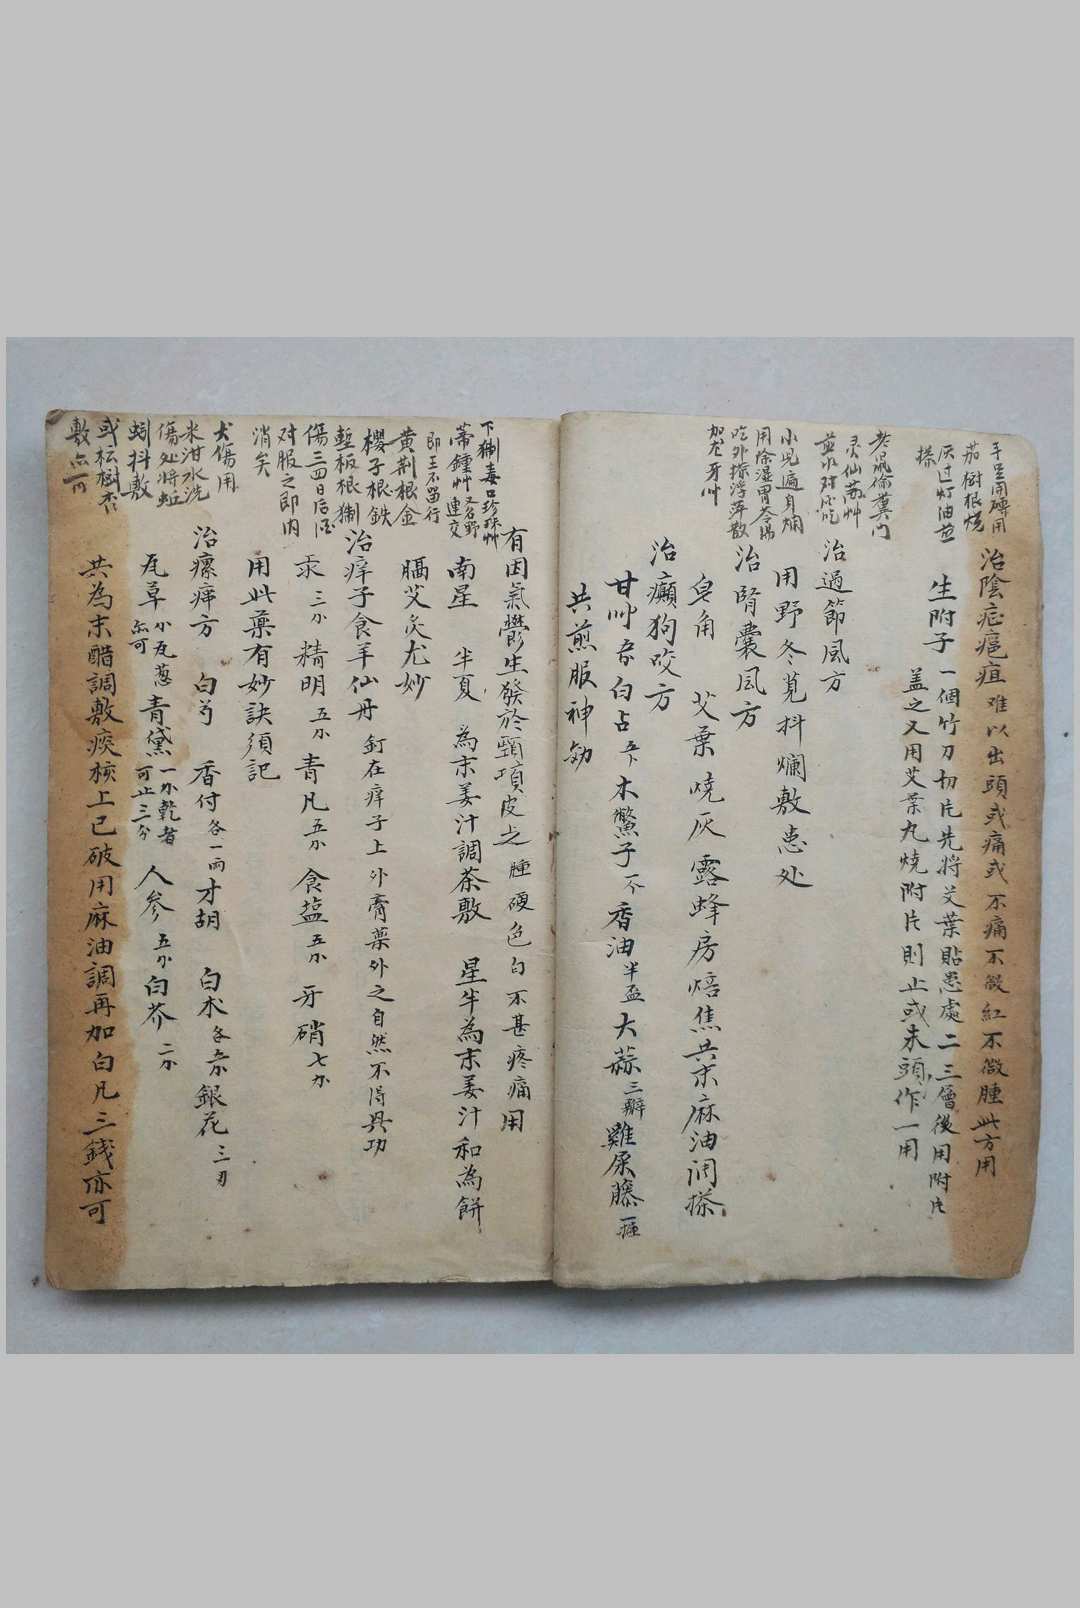 手足開磚用
茄樹根燒
灰过灯油蓝
搽
治陰疋疤疽难以出頭或痛或不痛不微紅不微腫此方用
生附子一個竹刀切片先將艾葉貼患處二三層後用附片
盖之又用艾葉丸燒附片則止或未頭作一用
灵仙荔艸
治過節風方
小児遍身爛
用除湿胃苓湯
吃外掠浮萍散
加龙牙艸
用野冬莧抖爛敷患处
治腎囊風方
皂角 艾葉燒灰露蜂房焙焦共末麻油调搽
治癲狗咬方
甘艸 白占 木鱉子 香油半盃大蒜三瓣雞屎藤
共煎服神効
下猘毒口珍珠艸
又名野
即王不留行
黄荆根金
櫻子根鉄
板根猘
傷三四日后酒
对服之即内
消矣
有因氣鬱生發於頸項皮上腫硬色白不甚疼痛用
南星 半夏 為末姜汁調茶敷 星半為末姜汁和為餅
膈艾灸尤妙
治痒子食羊仙丹釘在痒子上外膏藥外之自然不得具功
汞三分精明五分青凡五分食盐五分牙硝七分
用此藥有妙訣須記
犬傷用
米泔水洗
傷处將蚯
蚓抖敷
或枟樹杏
敷亦可
治瘰痺方 白芍 香付各一両才胡 白术各 銀花三刃
瓦草小瓦葱亦可青黛一分乾者可止三分人参五分白芥二分
共為末醋調敷痰核上已破用麻油調再加白凡三錢亦可